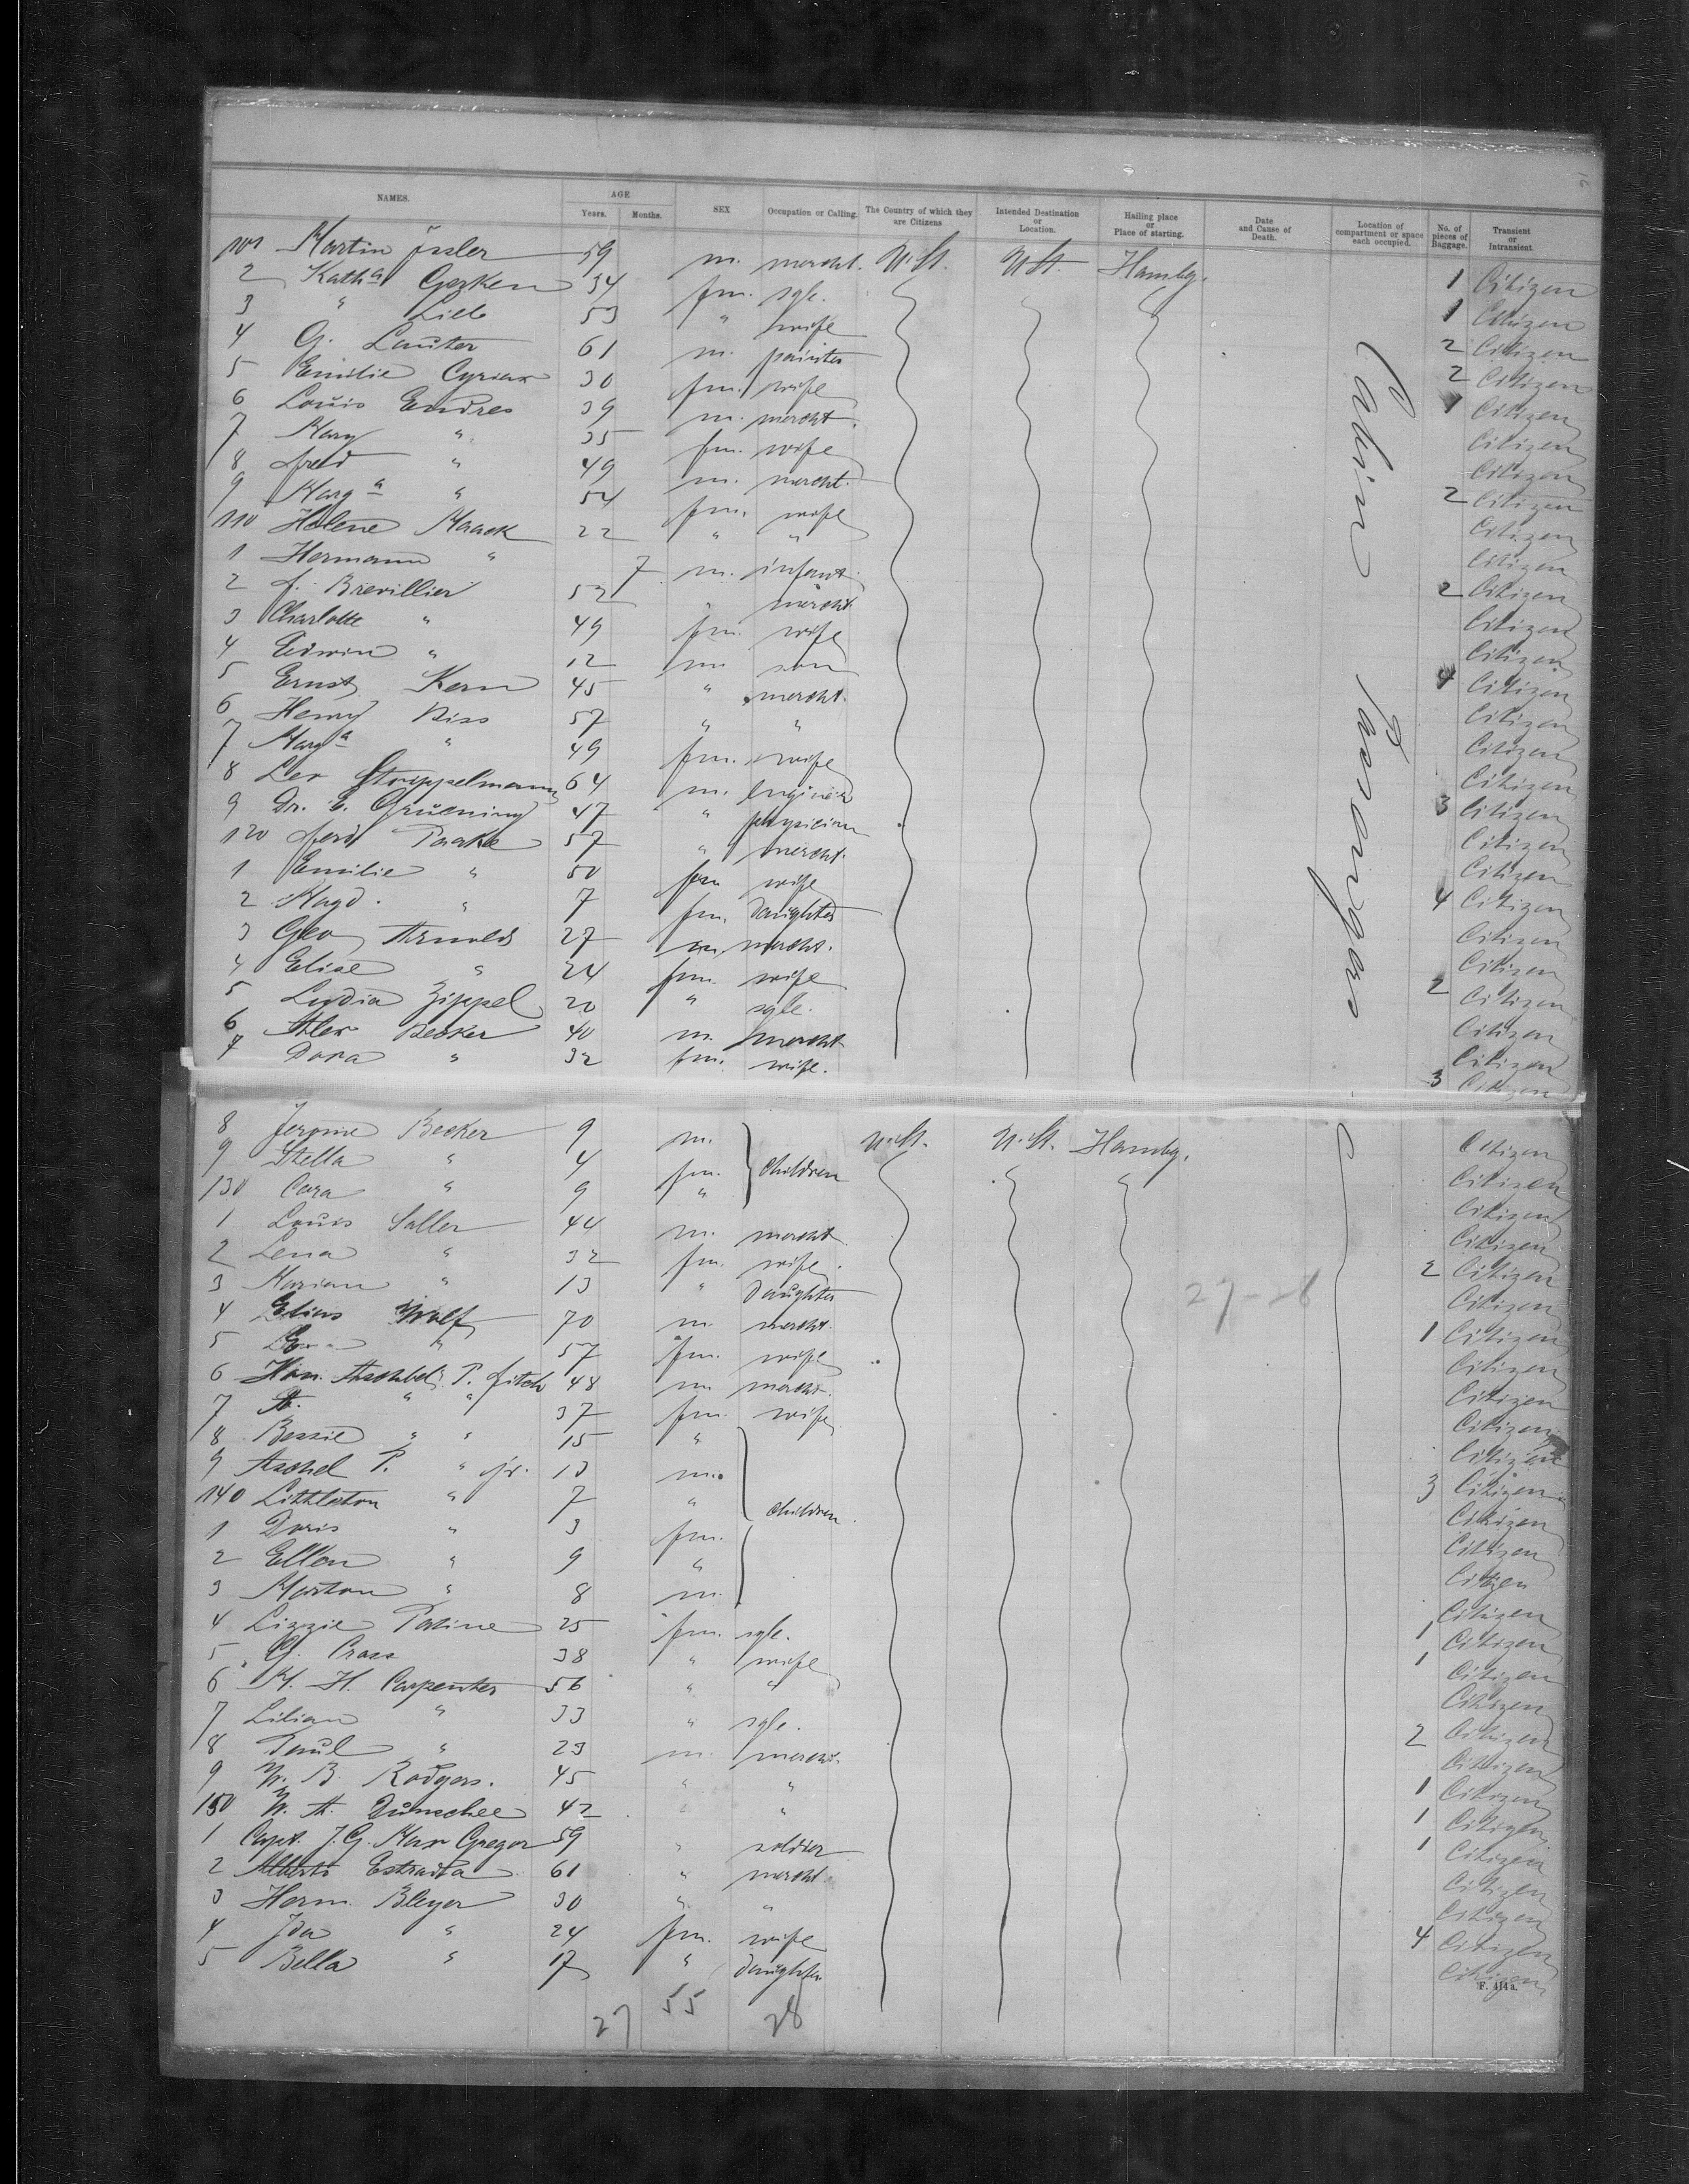 NAMES. AGE Years. Months. SEX Occupation or Calling. The Country of which they are Citizens Intended Destination or Location. Hailing place or Place of starting. Date and Cause of Death. Location of compartment or space each occupied. No. of pieces of Baggage. Transient or Intransient.
101 Martin 59 m. mercht. U. St. U St. Hambg. 1 Citizen
2 Kath a Gerken 34 fm. sgle. 1 Citizen
3 " 53 " wife 2 Citizen
4 G. Lauter 61 m. painter 2 Citizen
5 Emilie Cyriax 30 fm. wife 1 Citizen
6 Louis Endres 39 m. mercht. Citizen
7 Mary " 35 fm. wife Citizen
8 Fred " 49 m. mercht. 2 Citizen
9 Marg a " 54 fm. wife Citizen
110 Helene Maack 22 " " Citizen
1 Hermann " 7 m. infant. 2 Citizen
2 F. Brevillier 52 " mercht. Citizen
3 Charlotte " 49 fm. wife Citizen
4 Edwin " 12 m. son 4 Citizen
5 Ernst Kern 45 " mercht. Citizen
6 Henry 57 " " Citizen
7 Marg a " 49 fm. wife Citizen
8 Leo Strippelmann 64 m. Engineer 3 Citizen
9 Dr. E. Gruening 47 " physician Citizen
120 Ferd Paake 57 " mercht. Citizen
1 Emilie " 50 fm wife 4 Citizen
2 Magd. " 7 fm. Daughter Citizen
3 Geo Arnold 27 m. mercht. Citizen
4 Elise " 24 fm. wife 2 Citizen
5 Lydia Zippel 20 " sgle. Citizen
6 Alex Becker 40 m. mercht Citizen
7 Dora " 32 fm. wife. 3 Citizen
Cabin Passengers
8 Jerome Becker 9 m. U. St. U. St. Hambg. Citizen
9 Stella " 4 fm. Children Citizen
130 Cora " 9 " Citizen
1 Louis Saller 44 m. mercht Citizen
2 Lena " 32 fm. wife. 2 Citizen
3 Marian " 13 " Daughter Citizen
4 Elias Wolf 70 m. mercht. 1 Citizen
5 " 57 fm. wife Citizen
6 Hon. P. Fitch 48 m. mercht. Citizen
7 A. " " 37 fm. wife Citizen
8 Bessie " " 15 " Citizen
9 Aschel P. " jr. 13 m. 3 Citizen
140 Littleton " 7 " Children. Citizen
1 Doris " 3 fm. Citizen
2 Ellen " 9 " Citizen
3 Morton " 8 m. Citizen
4 Lizzie Patine 25 fm. sgle. 1 Citizen
5 G. Crass 38 " wife 1 Citizen
6 M. H. Carpenter 56 " " Citizen
7 Lilian " 33 " sgle. 2 Citizen
8 Paul " 23 m. mercht. Citizen
9 W. B. Rodgers. 45 " " 1 Citizen
150 W. A. Dunschee 42 " 1 Citizen
1 Capt. J. G. Max Gregor 59 " soldier 1 Citizen
2 Alberto Estrada 61 " mercht. Citizen
3 Herm. Bleyer 30 " " Citizen
4 Ida " 24 fm. wife 4 Citizen
5 Bella " 17 " Daughter Citizen
27 55 28